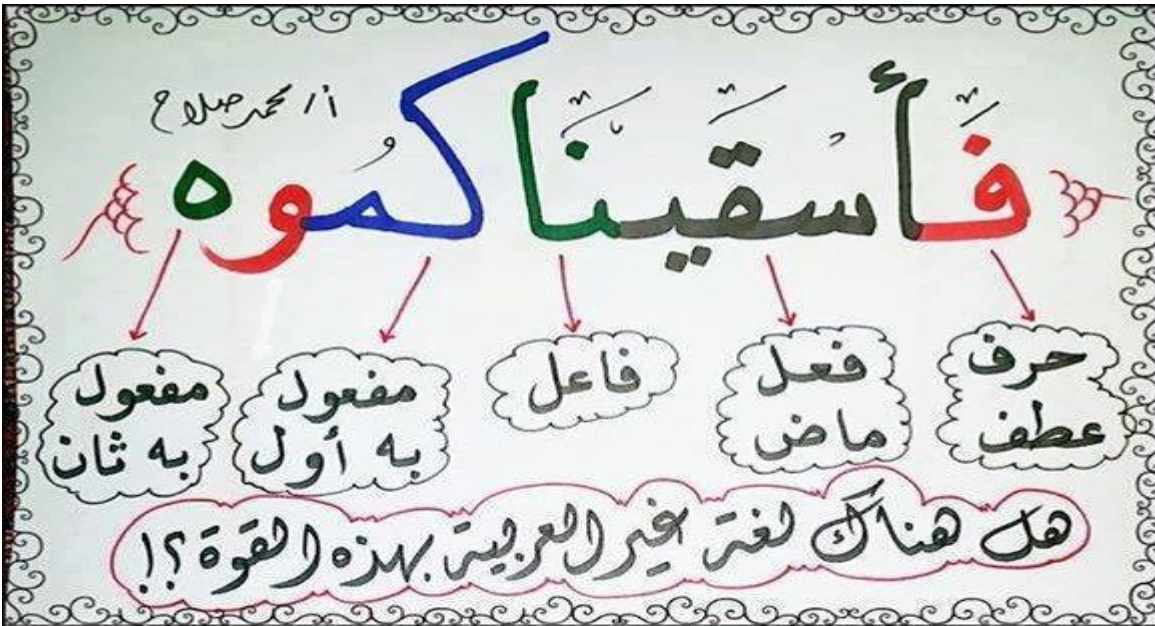 أ/ محمد صلاح
فأسقيناكموه
حرف عطف
فعل ماض
فاعل
مفعول به أول
مفعول به ثان
هل هناك لغة غير العربية بهذه القوة؟!